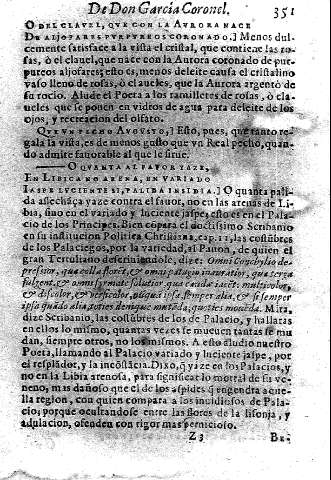 De Don Garcia Coronel. 351
O DEL CLAVEL, QVE CON LA AVRORA NACE
DE ALJOFARES PVRPVREOS CORONADO.] Menos dul-
cemente satisface a la vista el cristal, que contiene las ro-
sas, ò el clauel, que nace con la Aurora coronado de pur-
pureos aljofares; esto es, menos deleite causa el cristalino
vaso lleno de rosas, ò claueles, que la Aurora argentò de
su rocio. Alude el Poeta a los ramilletes de rosas, ò cla-
ueles que se ponen en vidros de agua para deleite de los
ojos, y recreacion del olfato.
QVE VN PECHO AVGVSTO,] Esto, pues, que tanto re-
gala la vista, es de menos gusto que vn Real pecho, quan-
do admite favorable al que le sirue.
O QVANTA AL FAVOR YAZE,
EN LIBICA NO ARENA, EN VARIADO
IASPE LVCIENTE SI, PALIDA INSIDIA.] O quanta pali-
da asechãça yaze contra el fauor, no en las arenas de Li-
bia, sino en el variado y luciente jaspe; esto es en el Pala-
cio de los Principes. Bien cõpara el doctissimo Scribanio
en su institucion Politica Christiana, cap. 12, las costũbres
de los Palaciegos, por la variedad, al Pauon, de quien el
gran Tertuliano descriuiendole, dize: Omni Conchylio de-
pressior, qua colla florẽt, & omni patagio inauratior, qua terga
fulgent, & omni syrmate solutior qua cauda iacẽt: multicolor,
& discolor, & versicolor, nũquã ipsa semper alia, & si semper
ipsa quãdo alia, toties denique mutãda, quoties mouẽda. Mira,
dize Scribanio, las costũbres de los de Palacio, y hallaras
en ellos lo mismo, quantas vezes se mueuen tantas se mu-
dan, siempre otros, no los mismos. A esto aludio nuestro
Poeta, llamando al Palacio variado y luciente jaspe, por
el resplãdor, y la incõstãcia. Dixo, q̃ yaze en los Palacios, y
no en la Libia arenosa, para significar lo mortal de su ve-
neno, mas dañoso que el de los aspides q̃ engendra aque-
lla region, con quien compara a los insidiosos de Pala-
cio; porque ocultandose entre las flores de la lisonja, y
adulacion, ofenden con rigor mas pernicioso.
Z3 BE-